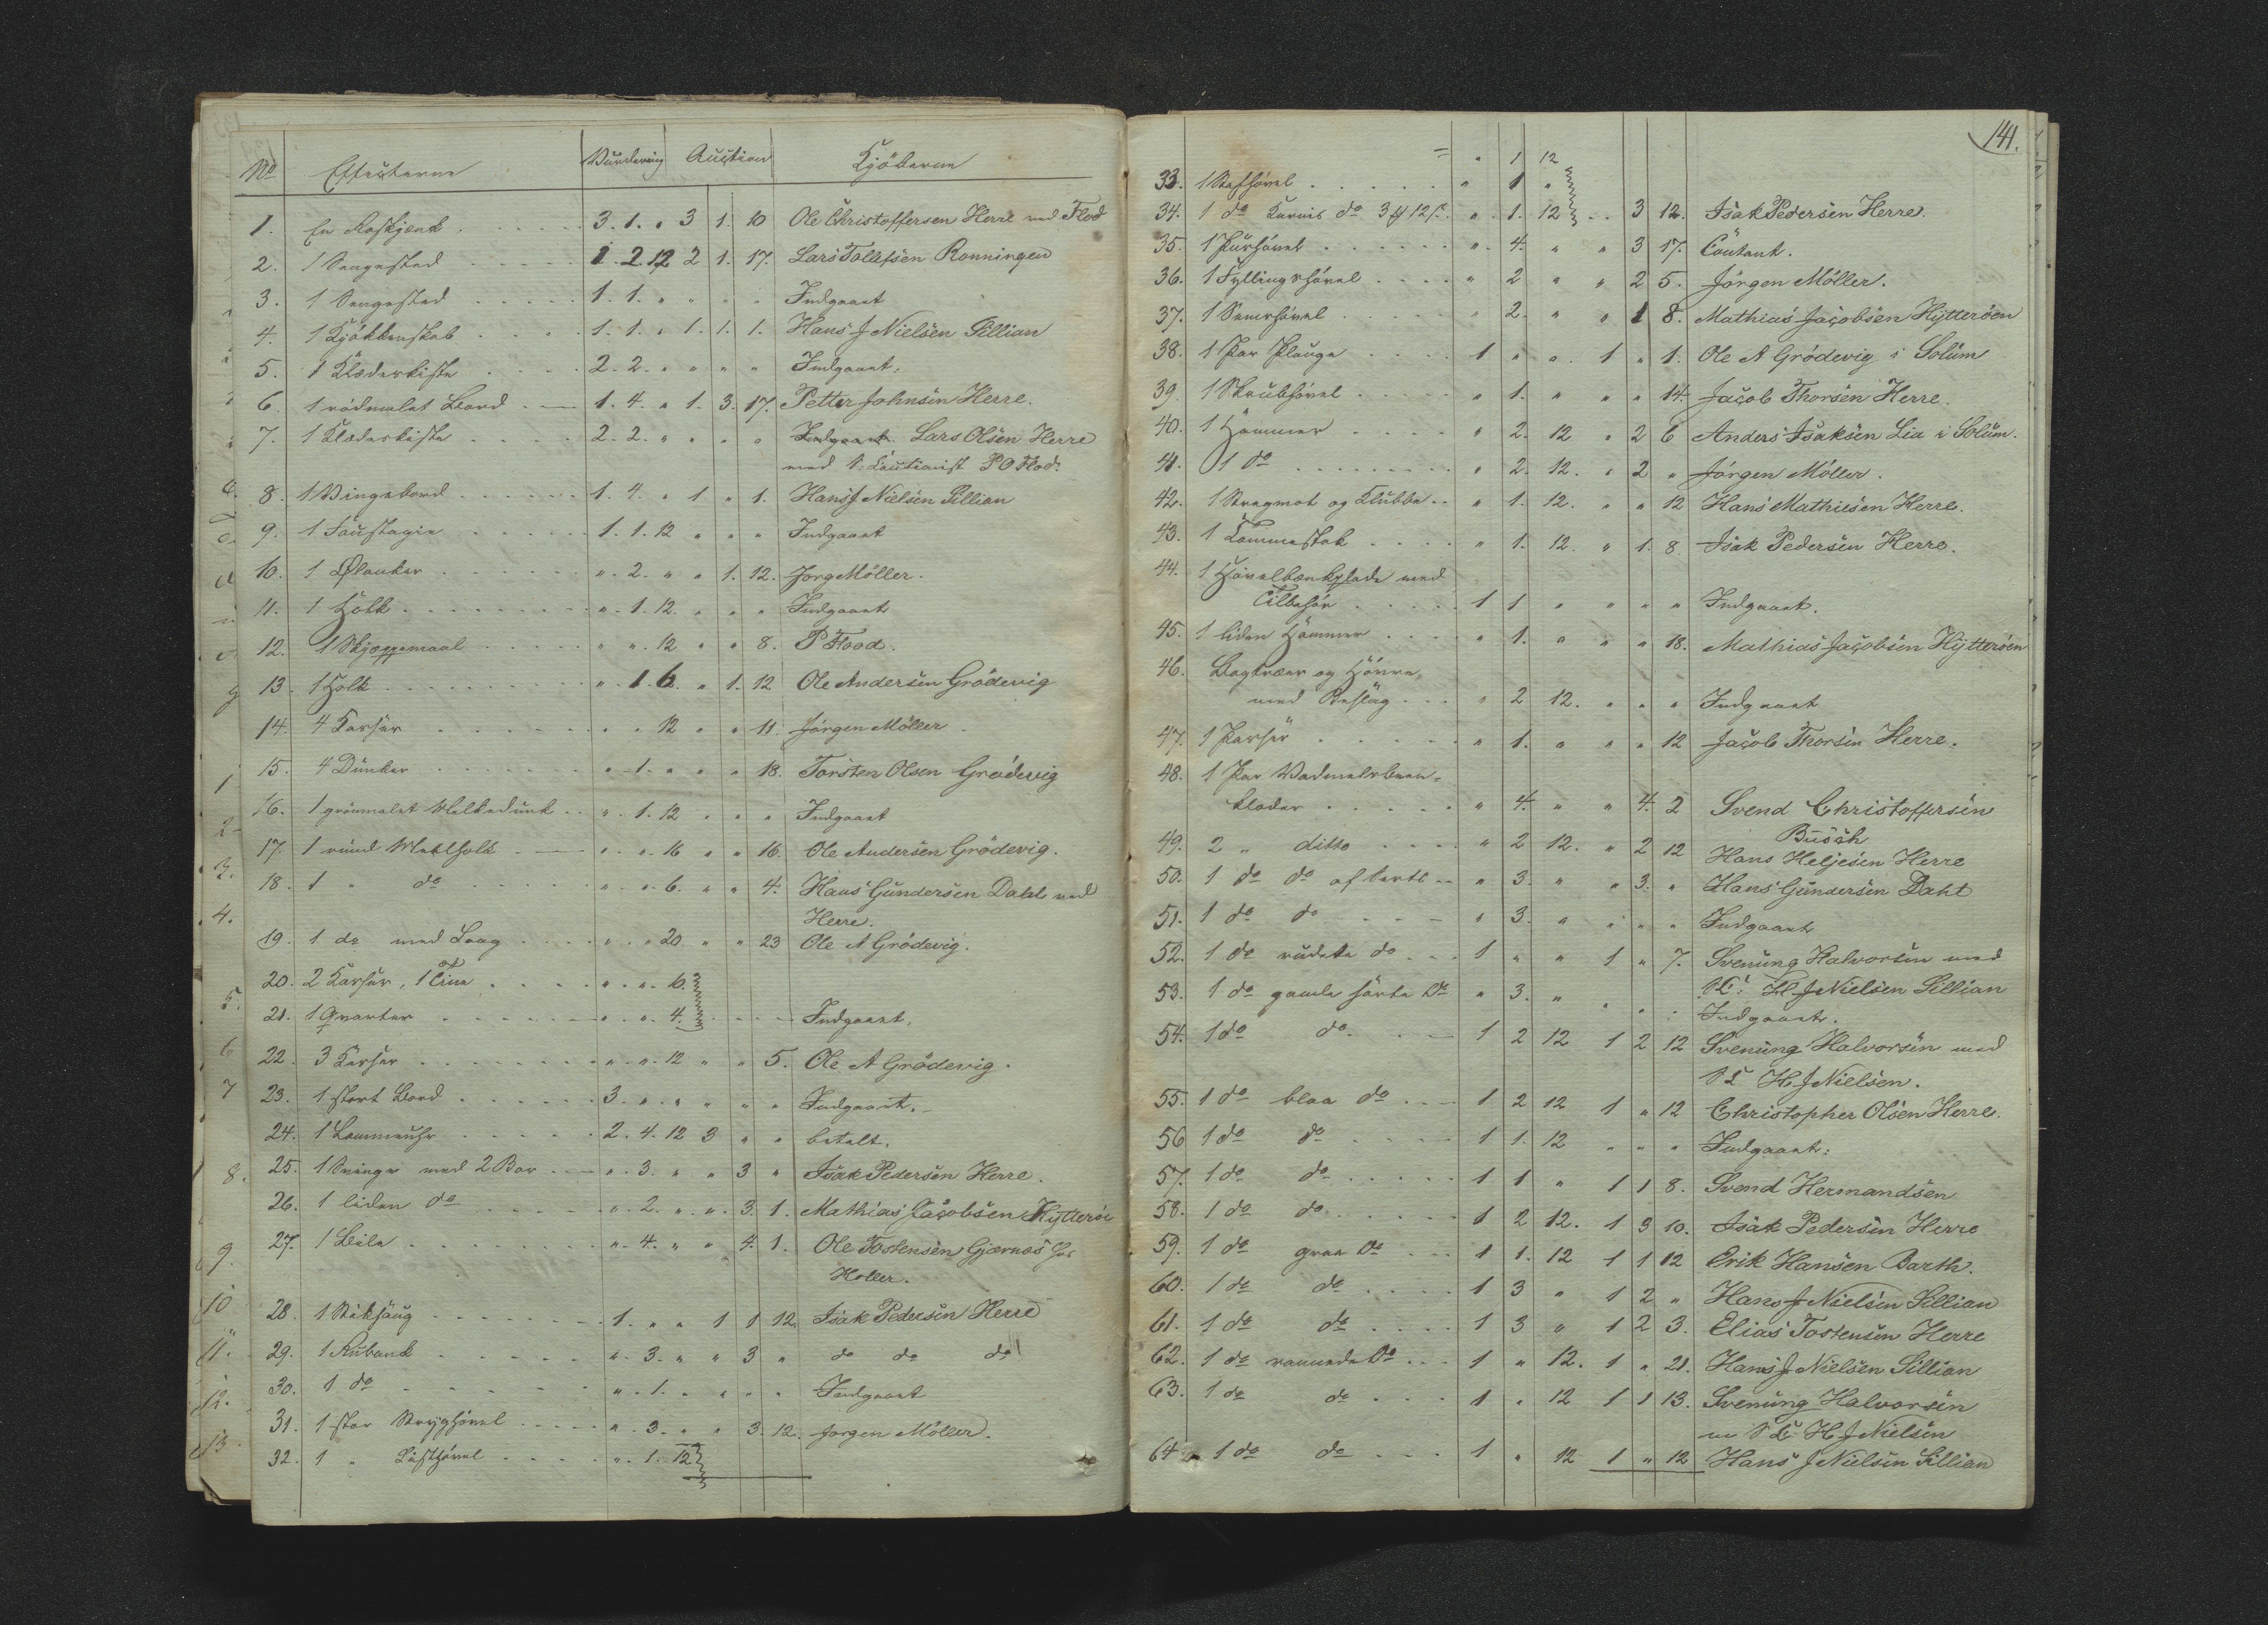 No Effecterne Vurdering Auction Kjöberne
1. En Roskjænk 3. 1. " 3 1. 10 Ole Christoffersen Herre ved Flod
2. 1 Sengested 1. 2. 12 2 1. 17. Lars Tollefsen Ronningen
3. 1 Sengested 1. 1. " " " " Indgaaet
4. 1 Kjökkenskab 1. 1. " 1. 1. 1. Hans J Nielsen Sillian
5. 1 Klædeskiste 2. 2. " " " " Indgaaet.
6. 1 rödmalet Bord 1. 4. " 1. 3. 17. Petter Johnsen Herre.
7. 1 Klædeskiste 2. 2. " " " " Indgaaet. Lars Olsen Herre
med S. Cautionist P O Flod.
8. 1 Vingebord 1. 4. " 1 " 1. Hans J Nielsen Sillian
9. 1 Foustagie 1. 1. 12 " " " Indgaaet
10. 1 Ølanker " 2. " " 1. 12. Jorg Möller.
11. 1 Holk " 1. 12. " " " Indgaaet
12. 1 Skjæppemaal " " 12 " " 8. P Flood.
13. 1 Holk " 1. 6. " 1. 12 Ole Andersen Grödevig
14. 4 Karser " " 12 " " 11. Jörgen Möller.
15. 4 Dunker " 1. " " " 18. Torsten Olsen Grödevig
16. 1 grönmalet Melkedunk " 1. 12 " " " Indgaaet
17. 1 rund Melholk " " 16 " " 16. Ole Andersen Grödevig.
18. 1 " do " " 6. " " 4. Hans Gundersen Dahl ved
Herre.
19. 1 do med Laag " " 20 " " 23 Ole A Grödevig.
20. 2 Karser, 1 Tine " " 16.
21. 1 Qvarter " " 4. Indgaaet.
22. 3 Karser " " 12 " " 5. Ole A Grödevig.
23. 1 stort Bord 3. " " " " " Indgaaet.
24. 1 Lommeuhr 2. 4. 12 3 " " betalt.
25. 1 Svinge med 2 Bor " 3. " " 3 " Isak Pedersen Herre.
26. 1 liden do " 2. " " 3. 1. Mathias Jacobsen Hytteröe
27. 1 Bile " 4. " " 4. 1. Ole Tostensen Gjernes
Holler.
28. 1 Stiksaug 1. " " 1 1 12. Isak Pedersen Herre
29. 1 Rubank " 3. " " 3 " do do do
30. 1 do " 1. " " " " Indgaaet
31. 1 stor Stryghövel " 3. " " 3. 12. Jorgen Möller.
32. 1 " Listhövel " 1. 12
141.
= " 1 12
33. 1 Stafhövel " 1 "
34. 1 do Karnis do " 1. 12 3 12. Isak Pedersen Herre.
35. 1 " 4. " " 3 17. Contant.
36. 1 Fyllingshövel " 2 " " 2 5. Jörgen Möller.
37. 1 Simshövel " 2. " " 1 8. Mathias Jacobsen Hytteröen
38. 1 Par Plouge 1 " " 1 " 1. Ole A Grödevig i Solum
39. 1 Skrubhövel " 1. " " " 14. Jacob Thorsen Herre.
40. 1 Hammer " 2. 12 " 2 6 Anders Isaksen Lia i Solum.
41. 1 do " 2. 12. " 2 " Jörgen Möller.
42. 1 Stregmot og Klubbe " 1. 12. " " 12 Hans Mathiesen Herre.
43. 1 Tommestok " 1. 12. " 1. 8. Isak Pedersen Herre.
44. 1 Hövelbænkplade med
Tilbehör 1 1 " " " " Indgaaet.
45. 1 liden Hammer " 1. " " " 18. Mathias Jacobsen Hytteröen
46. Bogtræer og Hövre,
med Beslag " 2 12. " " " Indgaaet
47. 1 Karser " 1. " " " 12 Jacob Thorsen Herre.
48. 1 Par Vadmelsbeen-
klæder " 4. " " 4. 2 Svend Christoffersen
Busch
49. 2 " ditto " 2 12. " 2 12 Hans Heljesen Herre
50. 1 do do " 3. " " 3. " Hans Gundersen Dahl
51. 1 do do " 3. " " " " Indgaaet
52. 1 do rudete do 1 " " 1 " 7. Svenung Halvorsen med
S C. H J Nielsen Sillian
53. 1 do gamle sorte do " 3. " " " " Indgaaet.
54. 1 do do. 1 2 12 1 2 12 Svenung Halvorsen med
S C H J Nielsen.
55. 1 do blaa do 1 2 12 1 " 12 Christopher Olsen Herre.
56 1 do do 1 1. 12 " " " Indgaaet.
57. 1 do do 1 1 " 1 1 8. Svend Hermandsen
58. 1 do do 1 2 12. 1 3 10. Isak Pedersen Herre
59. 1 do graa do 1 1. 12 1 1 12 Erik Hansen Barth.
60. 1 do do 1 3 " 1 2 " Hans J Nielsen Sillian
61. 1 do do 1 3 " 1 2 3. Elias Tostensen Herre
62. 1 do rannede do 1 " 12. 1 " 21. Hans J Nielsen Sillian
63. 1 do do 1 " 12 1 1 13. Svenung Halvorsen
m S C H J Nielsen
64 1 do do 1 " 12 1 " 12 Hans J Nielsen Sillian